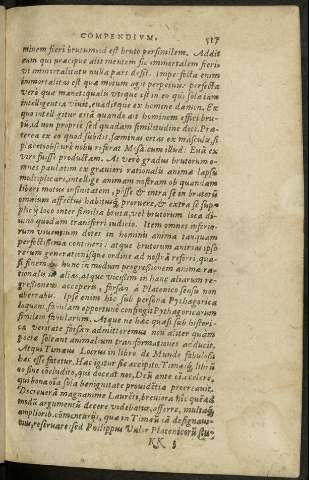 COMPENDIVM. 517
minem fieri brutum: id est bruto persimilem. Addit
eum qui præcipue alit mentem sic immortalem fieri
vt immortalitati nulla pars desit. imperfecta enim
immortalitas est quæ motum agit perpetuum: perfecta
verò quæ manet: qualis vtique est in eo qui sola iam
intelligentia viuit, euaditque ex homine dæmon. Ex
quo intelligitur etiā quando ait hominem effici bru-
tū, id non propriè sed quadam similitudine dici. Præ-
terea ex eo quod subdit, fœminas ortas ex masculis, si
viro fuisse productam. At verò gradus brutorum o-
mnes paulatim ex grauiori rationalis animæ lapsu
multiplicari, intellige animam nostram ob quandam
liberi motus infinitatem, posse & intra se in brutorū
omnium affectus habitusq́; proruere, & extra se
inter similia bruta, vel brutorum loca di-
uino quodam transferri iudicio. Item omnes inferio-
rum viuentium dici in hominis anima tanquam
perfectissima contineri: atque brutorum animas ipso
rerum generationisque ordine ad nostrā referri, qua-
si finem: & hunc in modum progressionem animæ ra-
tionalis in alias, atque vicissim in hanc aliarum re-
gressionem acceperis, forsan à Platonico sensu non
aberrabis. Ipse enim hic sub persona Pythagorica
fabulam opportunè confingit Pythagoricarum
similem fabularum. Atque ne hac quasi sub histori-
ca veritate forsan admitteremus non aliter quam
poetæ soleant animalium transformationes adducit.
Atqui Timæus Locrus in libro de Mundo fabulosa
hæc esse fatetur. Hæc igitur sic accepito. Timæiq́; librū
eo sine concludito, qui doceat nos, Deū ante oīa colere,
qui bona oīa sola benignitate prouidētia præcreauit.
Decreuerā magnanime Laurēti, breuiora hic
argumentū decere videbatur, afferre, multaq́;
amplioribus cōmentarijs, quæ in Timæū iā
mus, reseruare: sed Philippus Valor Platonicorū
KK 3